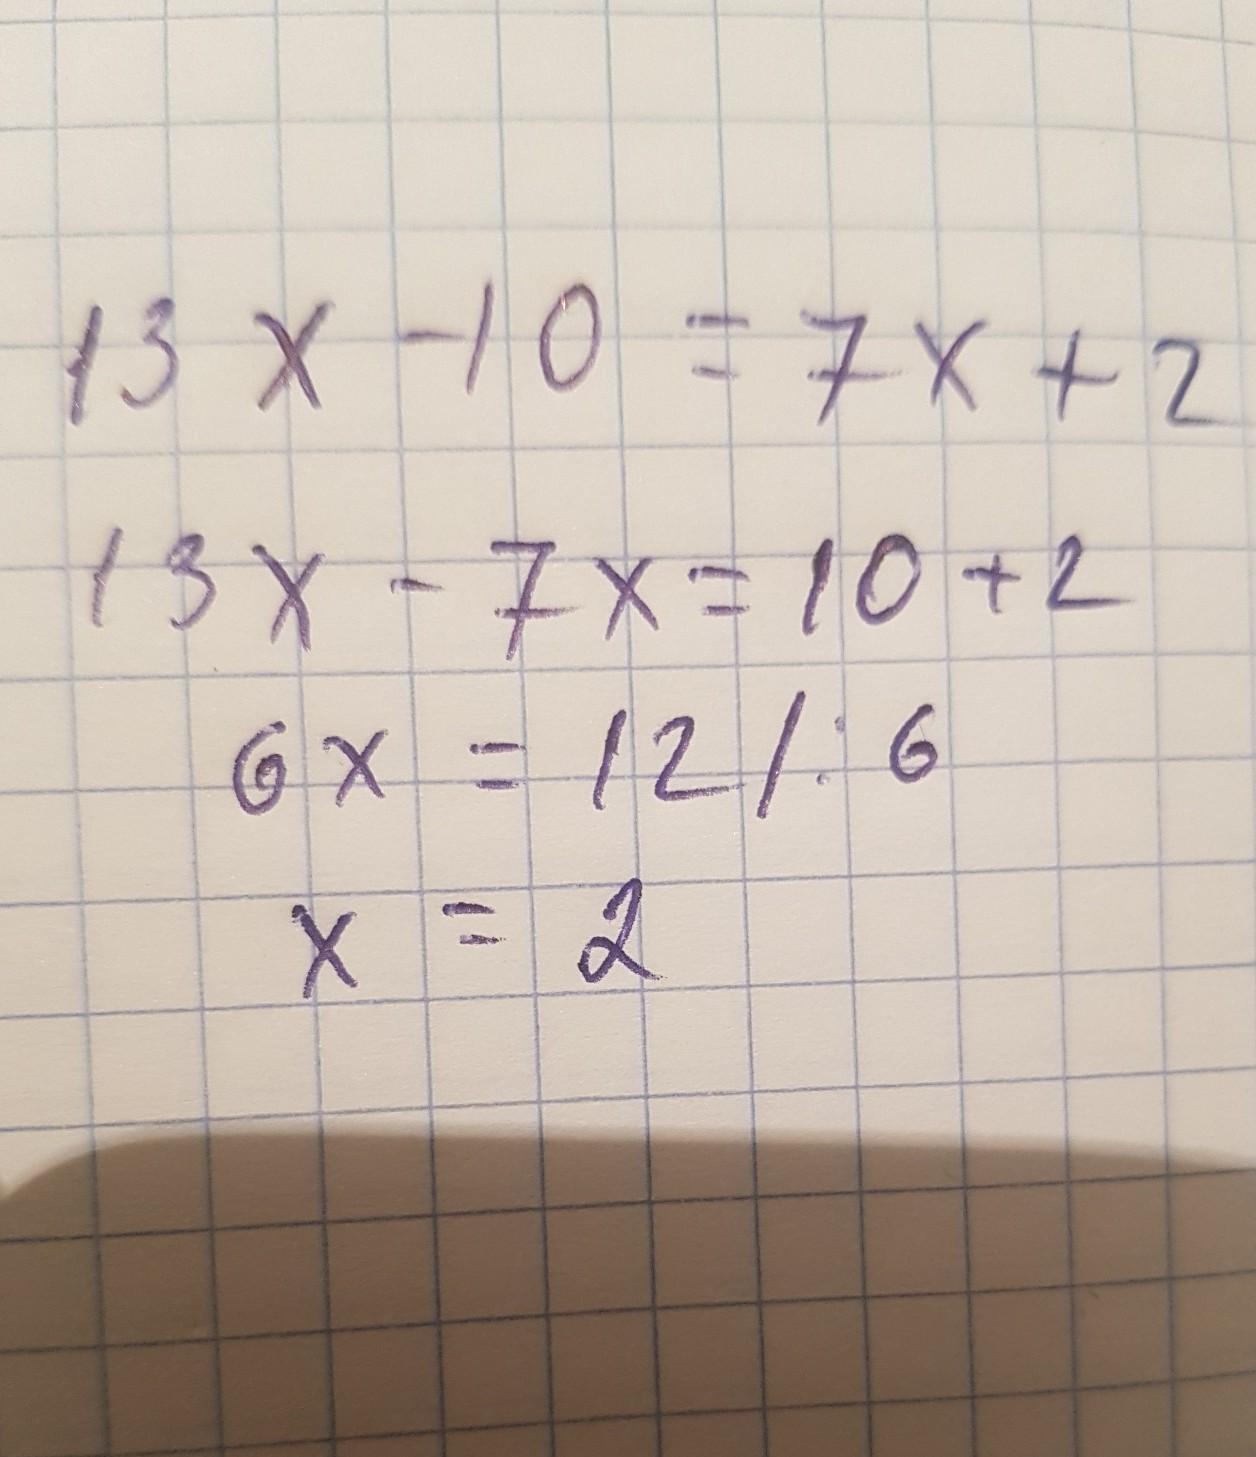 13x - 10 = 7x + 2
13x - 7x = 10 + 2
6x = 12 /: 6
x = 2